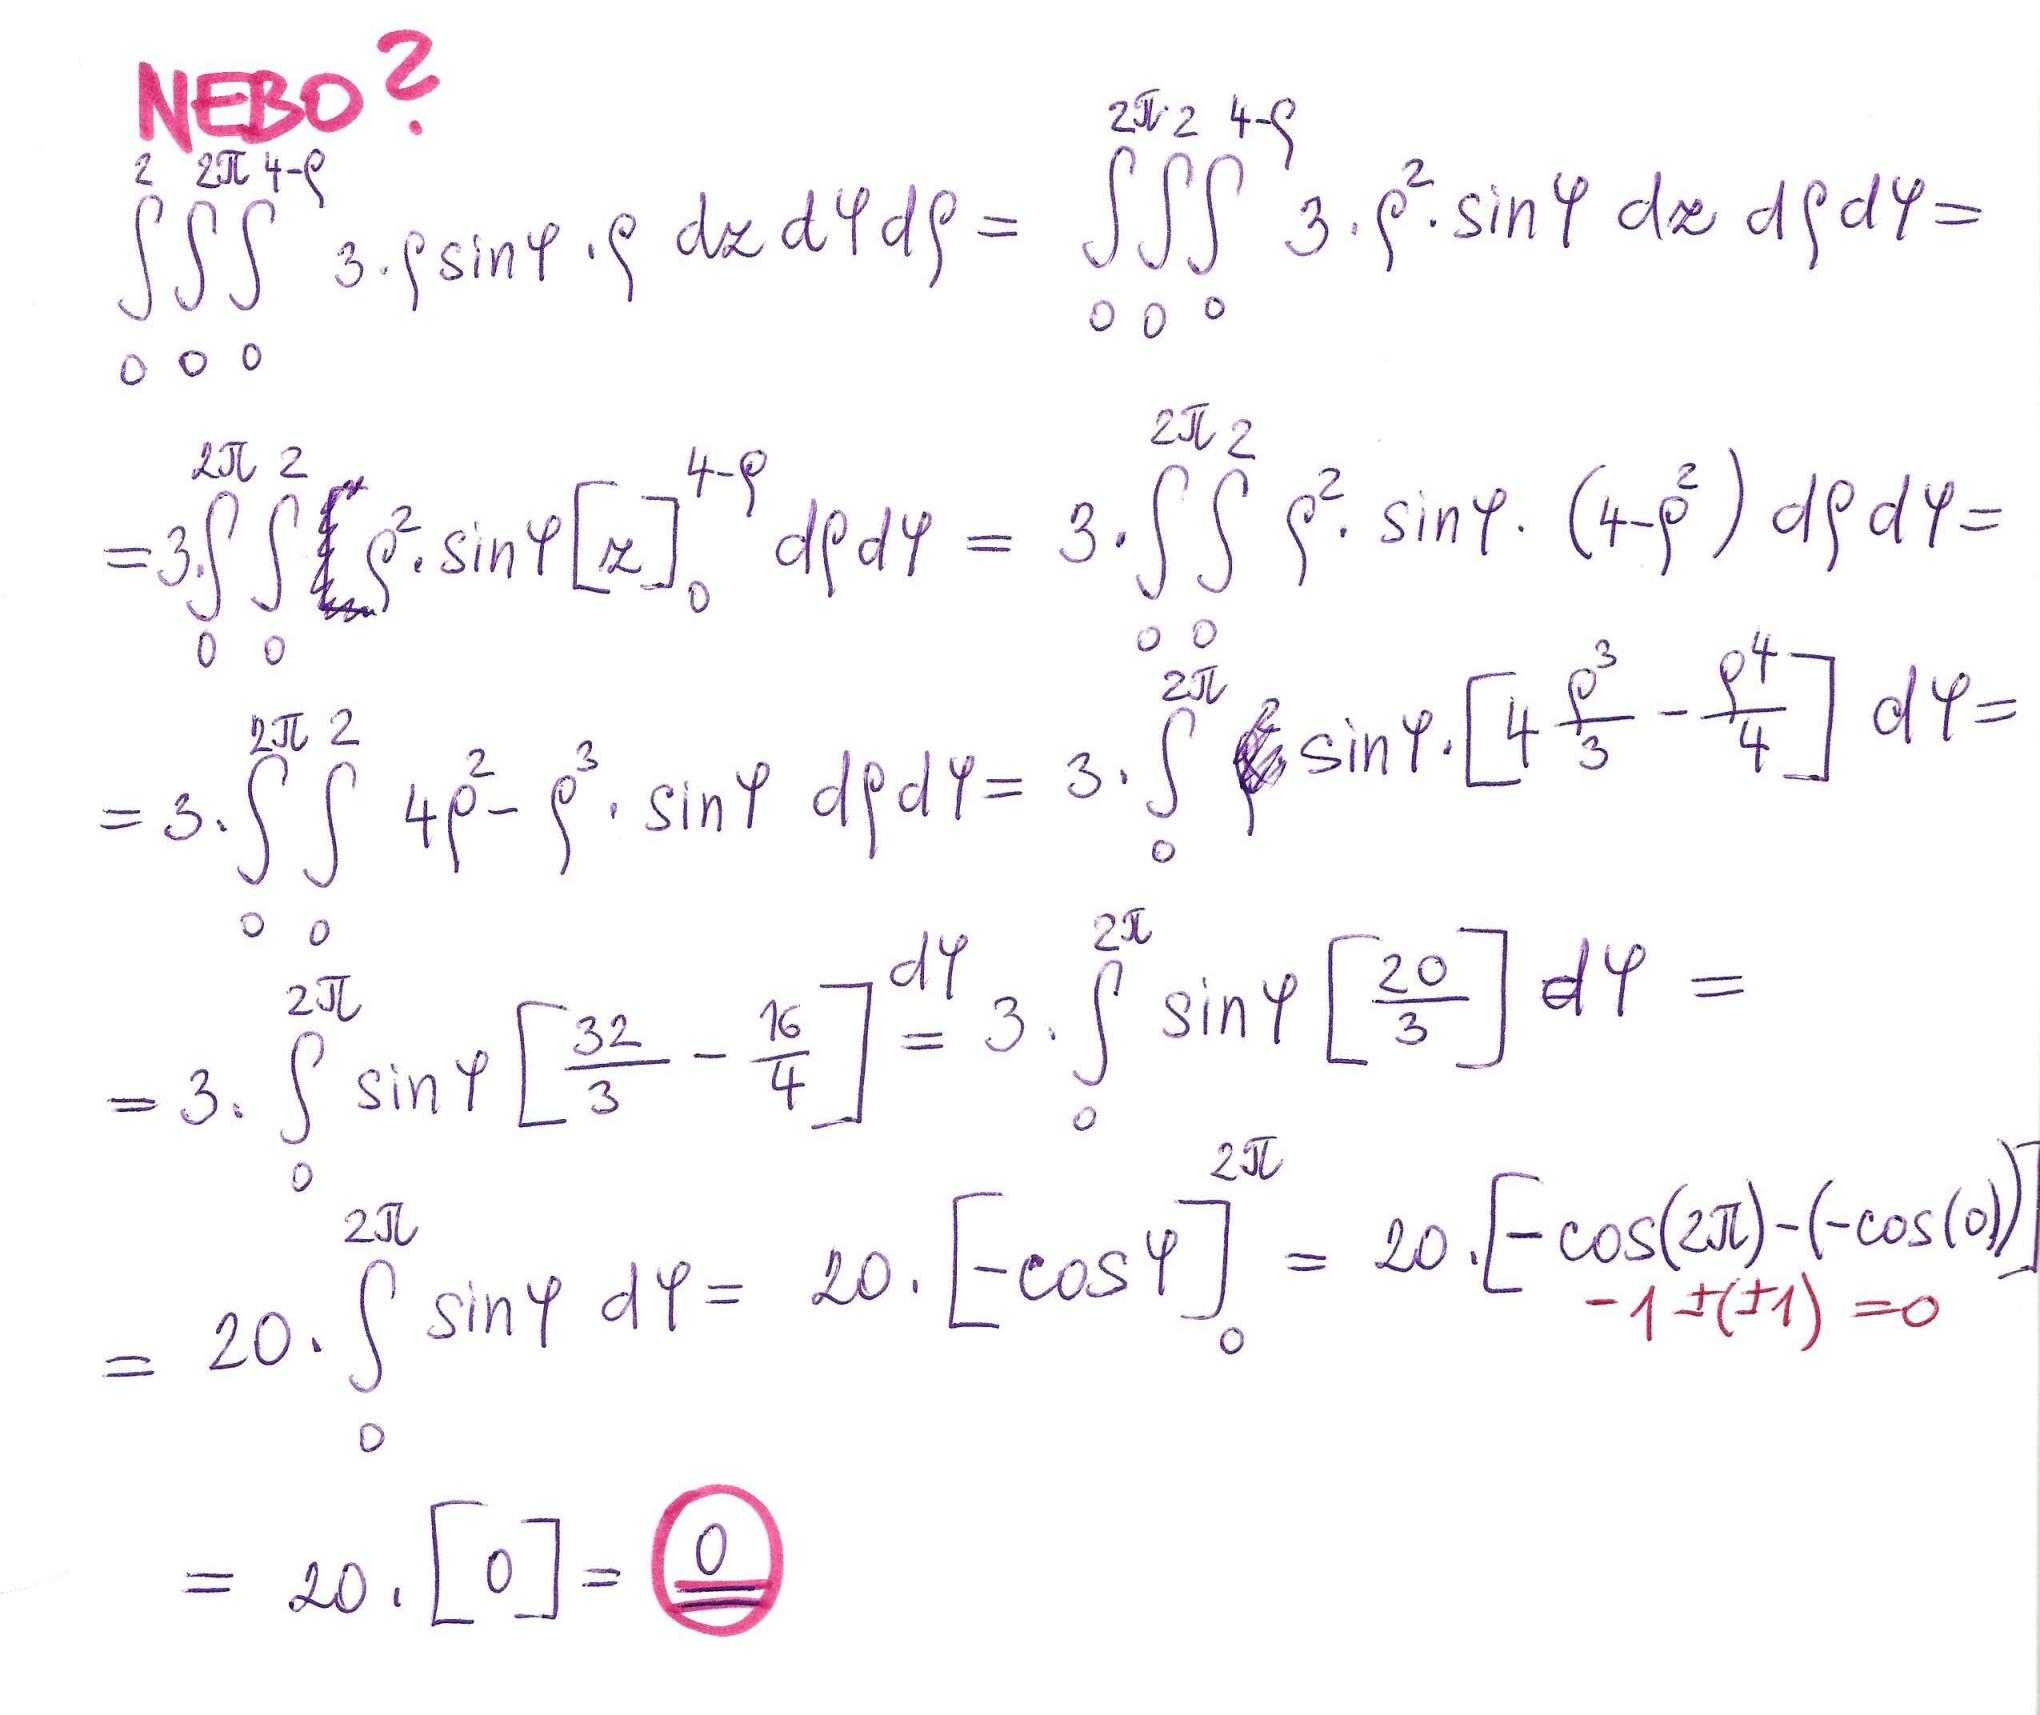 NEBO?
∫₀² ∫₀^{2π} ∫₀^{4-ρ} 3·ρ sin φ · ρ dz dφ dρ = ∫₀^{2π} ∫₀² ∫₀^{4-ρ} 3·ρ²·sin φ dz dρ dφ =
= 3·∫₀^{2π} ∫₀² ρ²·sin φ [z]₀^{4-ρ} dρ dφ = 3·∫₀^{2π} ∫₀² ρ²·sin φ·(4-ρ²) dρ dφ =
= 3·∫₀^{2π} ∫₀² 4ρ² - ρ³·sin φ dρ dφ = 3·∫₀^{2π} sin φ·[4 ρ³/3 - ρ⁴/4] dφ =
= 3·∫₀^{2π} sin φ [32/3 - 16/4] dφ = 3·∫₀^{2π} sin φ [20/3] dφ =
= 20·∫₀^{2π} sin φ dφ = 20·[-cos φ]₀^{2π} = 20·[-cos(2π)-(-cos(0))]
-1 ±(±1) = 0
= 20·[0] = 0